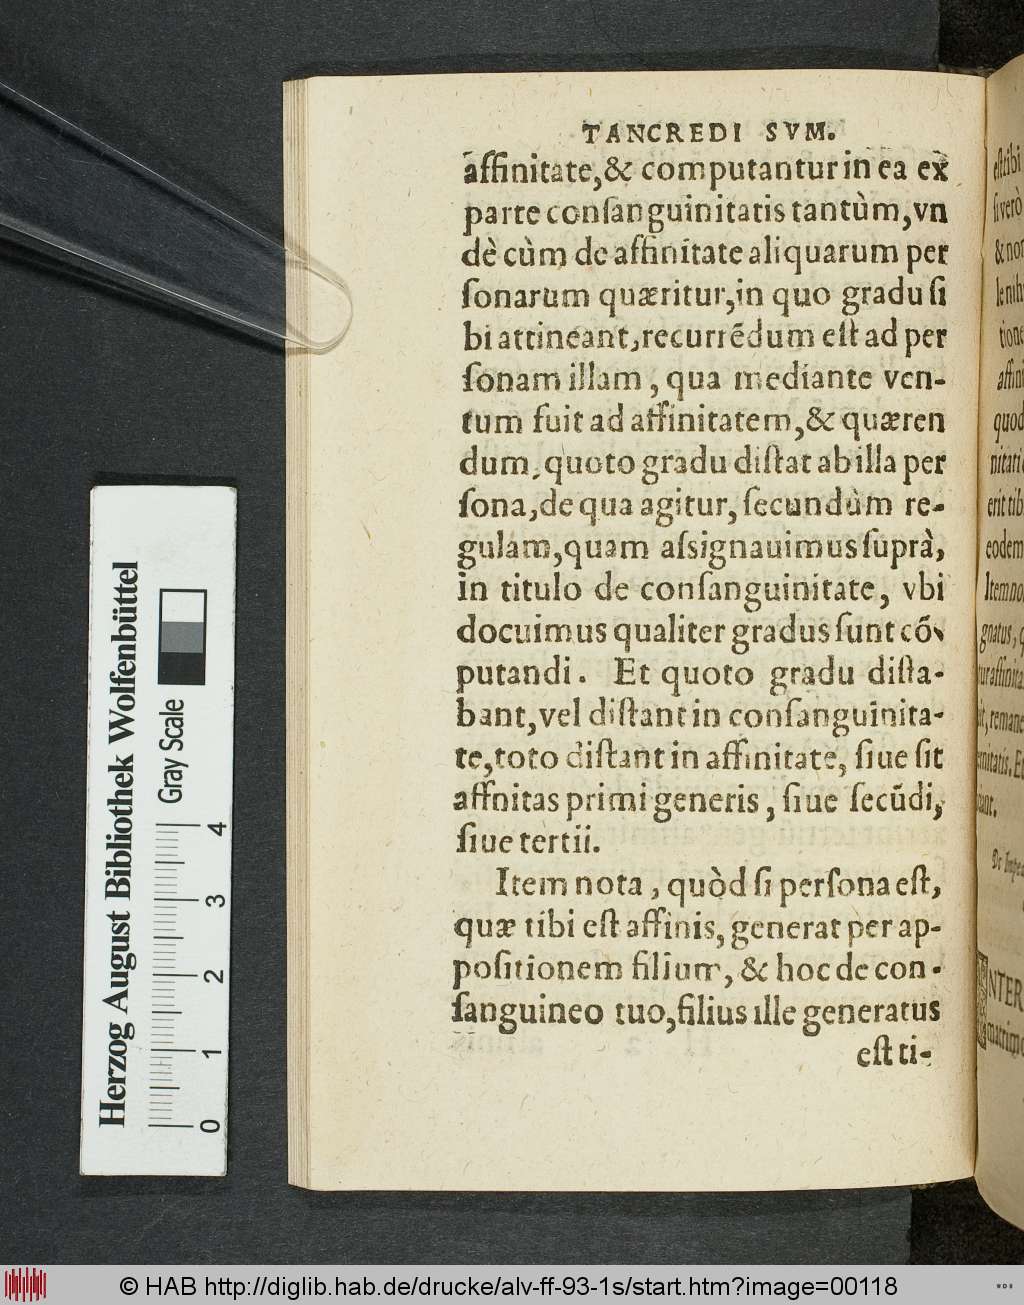 TANCREDI SVM.
affinitate,& computantur in ea ex
parte conſanguinitatis tantùm,vn
dè cùm de affinitate aliquarum per
ſonarum quæritur,in quo gradu ſi
bi attineant,recurrẽdum eſt ad per
ſonam illam, qua mediante ven-
tum fuit ad affinitatem,& quæren
dum, quoto gradu diſtat ab illa per
ſona,de qua agitur, ſecundùm re-
gulam,quam aſsignauimus ſuprà,
in titulo de conſanguinitate, vbi
docuimus qualiter gradus ſunt cõ-
putandi. Et quoto gradu diſta-
bant,vel diſtant in conſanguinita-
te,toto diſtant in affinitate, ſiue ſit
affnitas primi generis, ſiue ſecũdi,
ſiue tertii.
Item nota, quòd ſi perſona eſt,
quæ tibi eſt affinis, generat per ap-
poſitionem filium, & hoc de con-
ſanguineo tuo,filius ille generatus
eſt ti-
eſt tibi
ſi verò
& non
le nih
tione
affini
quod
nitati
erit tib
eodem
Item no
gnatus, q
tur affinita
it, remane
ernitatis. Et
INTER
matrimo
Herzog August Bibliothek Wolfenbüttel
Gray Scale
0 1 2 3 4
© HAB http://diglib.hab.de/drucke/alv-ff-93-1s/start.htm?image=00118